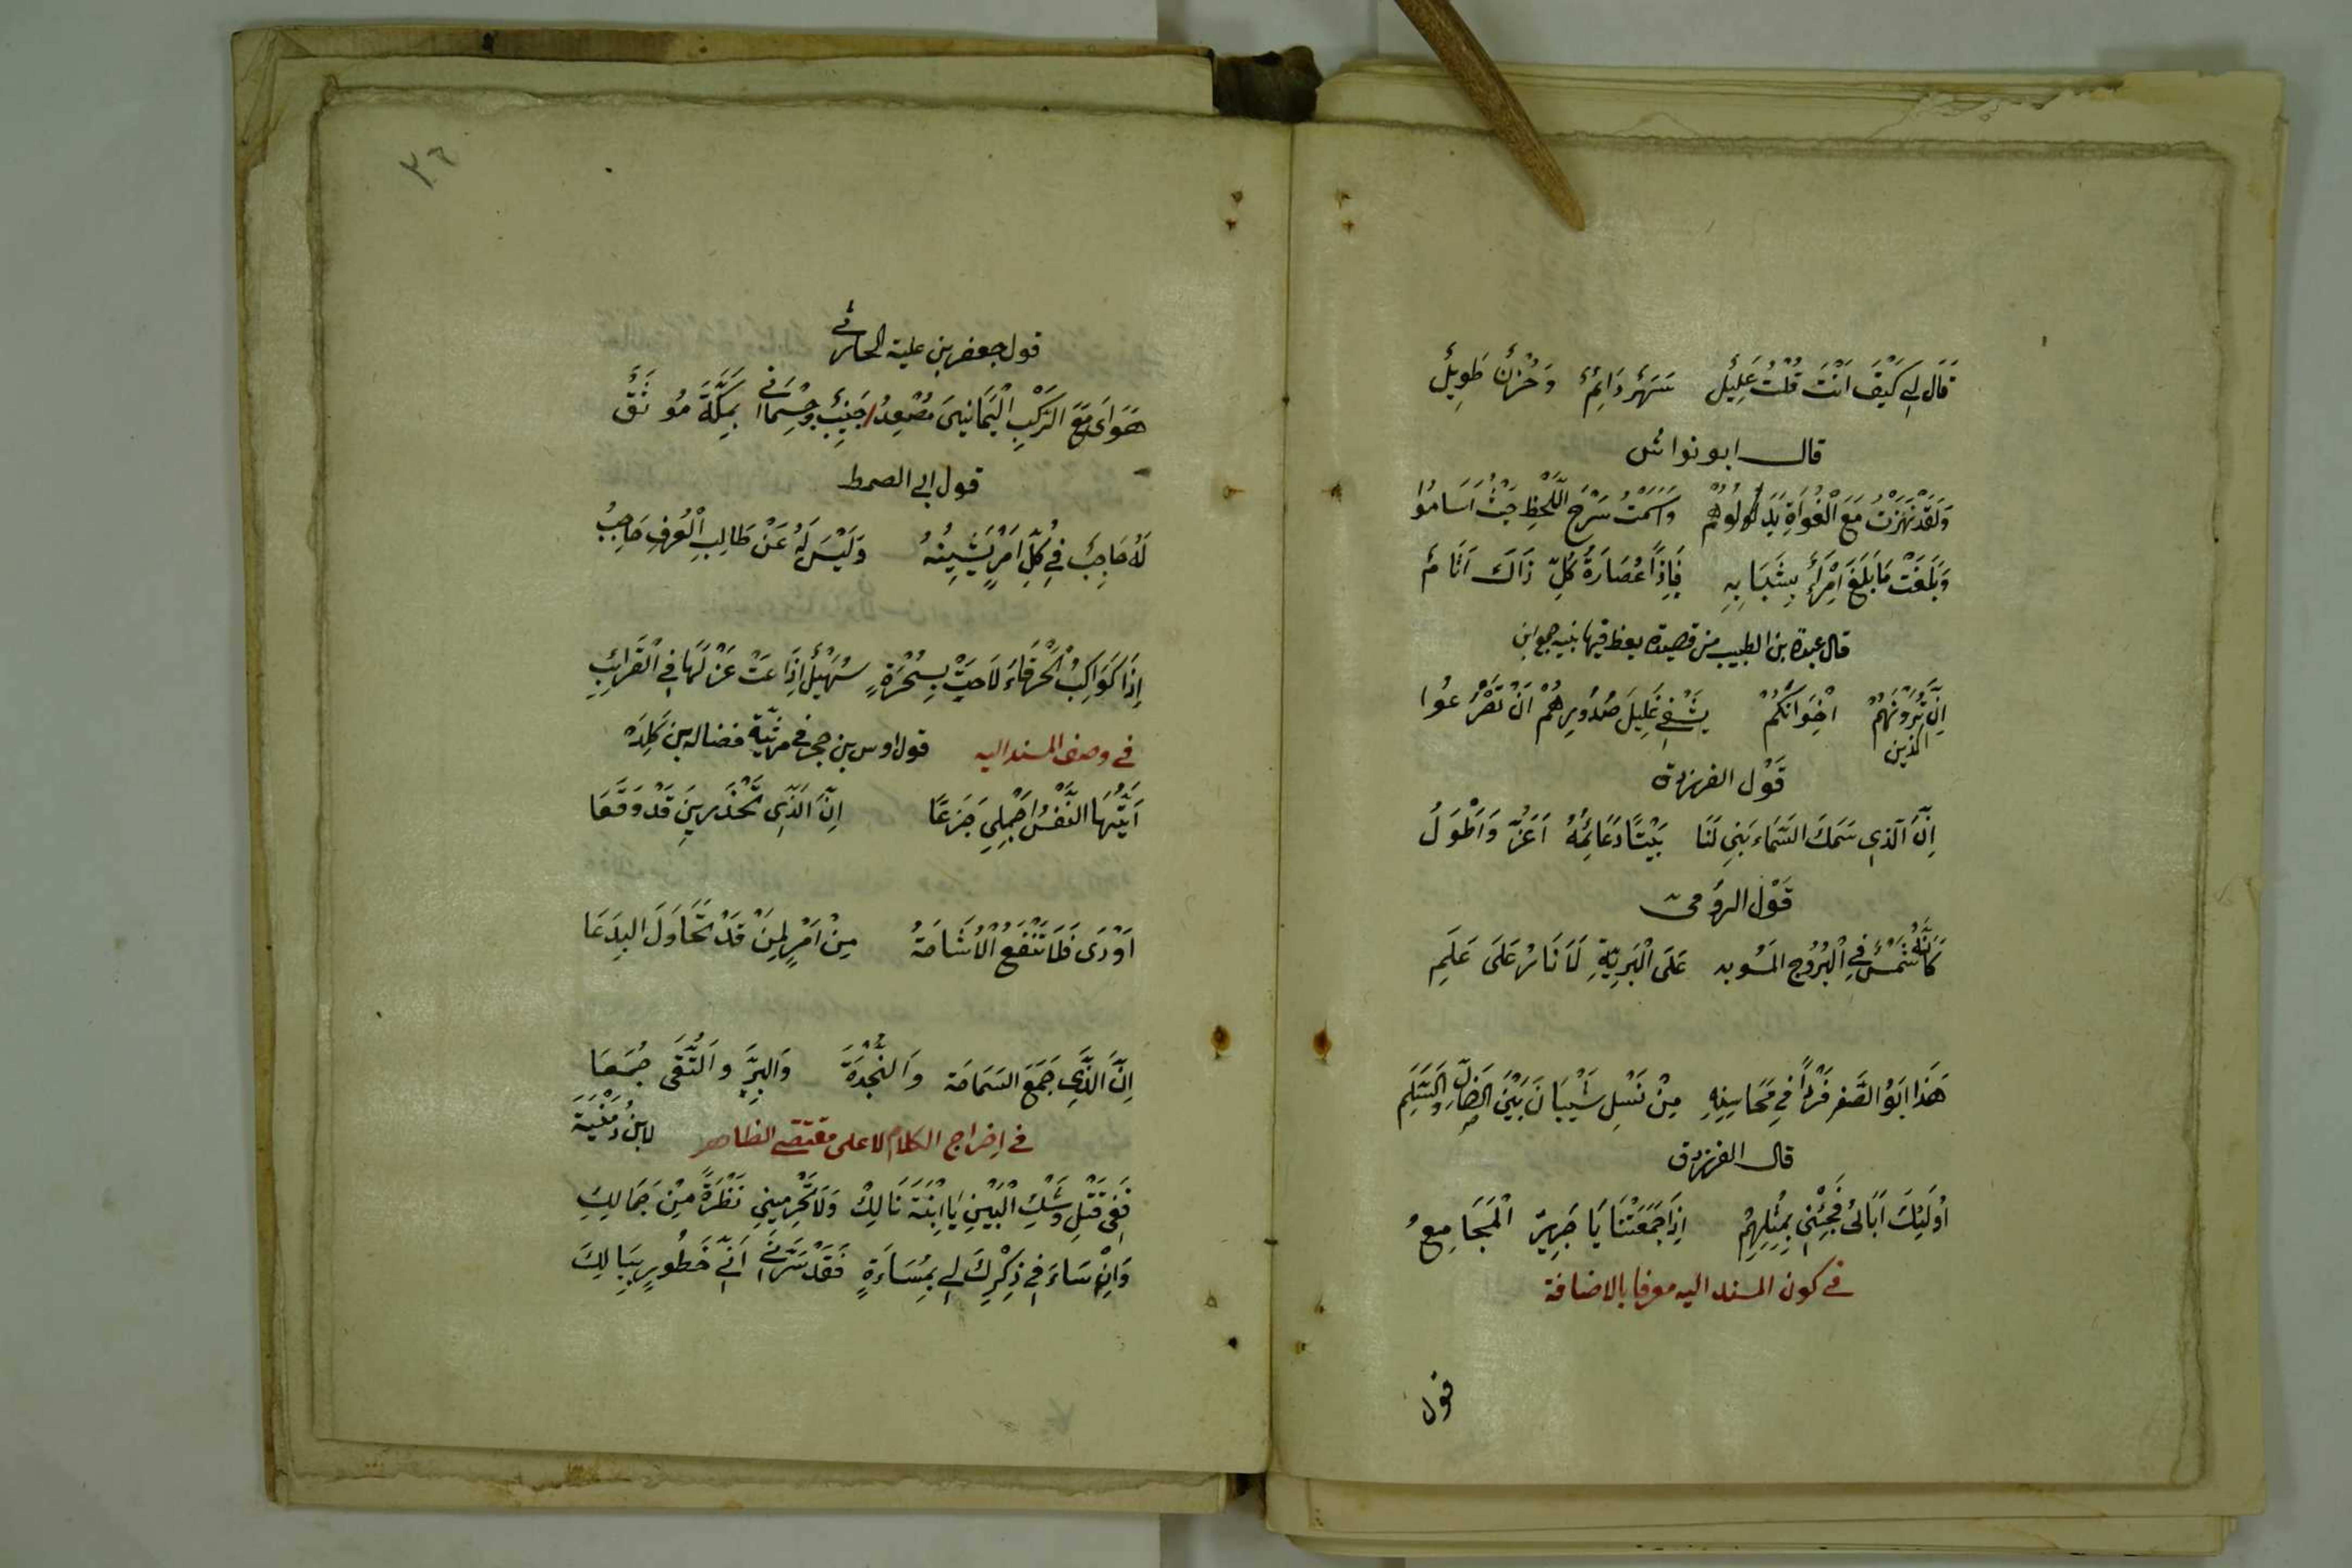 قَالَ لِي كَيْفَ اَنْتَ قُلْتُ عَلِيْلٌ سَهَرٌ دَائِمٌ وَحُزْنٌ طَوِيلٌ
قال ابو نواس
وَلَقَدْ نَهَزْتُ مَعَ الْغُوَاةِ بِدَلْوِهُمْ وَاَسَمْتُ سَرْحَ اللَّحْظِ حَيْثُ اَسَامُوا
وَبَلَغْتُ مَا بَلَغَ اِمْرَأٌ بِشَبَابِهِ فَاِذًا عُصَارَةُ كُلِّ ذَاكَ اَثَامٌ
قال عبدة بن الطبيب من قصيدة يعظ فيها بنيه
اِنَّ الذين تُرَوْنَهُمْ اِخْوَانَكُمْ يَشْفِي غَلِيلَ صُدُورِهُمْ اَنْ تُصْرَعُوا
قَوْل الفرزدق
اِنَّ الَّذِي سَمَكَ السَّمَاءَ بَنَى لَنَا بَيْتًا دَعَائِمُهُ اَعَزُّ وَاَطْوَلُ
قَوْل الرومى
كَاَنَّهُ شَمْسٌ فِي الْبُرُوجِ عَلَى الْبَرِيَّةِ لَا نَارٌ عَلَى عَلَمِ
هَذَا اَبُو الصَّقر فَرْدًا فِي مَحَاسِنِهِ مِنْ نَسْلِ شَيْبَانَ بَيْنَ الضَّالِ وَالسَّلَمِ
قال الفرزدق
اُولَئِكَ اَبَائِى فَجِئْنِي بِمِثْلِهِمْ اِذَا جَمَعَتْنَا يَا جَرِيرُ الْمَجَامِعُ
في كون المسند اليه معرفا بالاضافة
قول
٣٦
قول جعفر بن علبة الحارثي
هَوَاىَ مَعَ الرَّكْبِ الْيَمَانِينَ مُصْعِدُ جَنِيبٌ وَجُسْمَانِي بِمَكَّةَ مُوثَقٌ
قول ابي الصمط
لَهُ حَاجِبٌ فِي كُلِّ اَمْرٍ يَشِينُهُ وَلَيْسَ لَهُ عَنْ طَالِبِ الْعُرْفِ حَاجِبُ
اِذَا كَوَاكِبُ الْخَرْقَاءِ لَاحَتْ بِسُحْرَةٍ سُهَيْلٌ اِذَاعَتْ غَزْلَهَا فِي الْقَرَائِبِ
في وصف المسند اليه قول اوس بن حجر في مرثية فضاله بن كَلِدَه
اَيَّتُهَا النَّفْسُ اَجْمِلِي جَزَعًا اِنَّ الَّذِى تَحْذَرِينَ قَدْ وَقَعَا
اَوْدَى فَلَا تَنْفَعُ الْاُشَاحَةُ مِنْ اَمْرٍ لِمَنْ قَدْ تَحَاوَلَ البِدَعَا
اِنَّ الَّذِي جَمَعَ السَمَاحَة وَالنَّجْدَةَ وَالْبِرَّ وَالتُّقَى جُمَعَا
في اخراج الكلام لا على مقتضى الظاهر لابن دُمَيْنَة
قِفِي قَبْلَ وَشْكِ الْبَيْنِ يَا ابْنَةَ مَالِكٍ وَلَا تَحْرِمِينِي نَظْرَةً مِنْ جَمَالِكِ
وَاِنْ سَاءَنِي ذِكْرِكَ لِي بِمُسَاءَةٍ فَقَدْ سَرَّنِي اَنِّي خَطُورٍ بِبَالِكَ